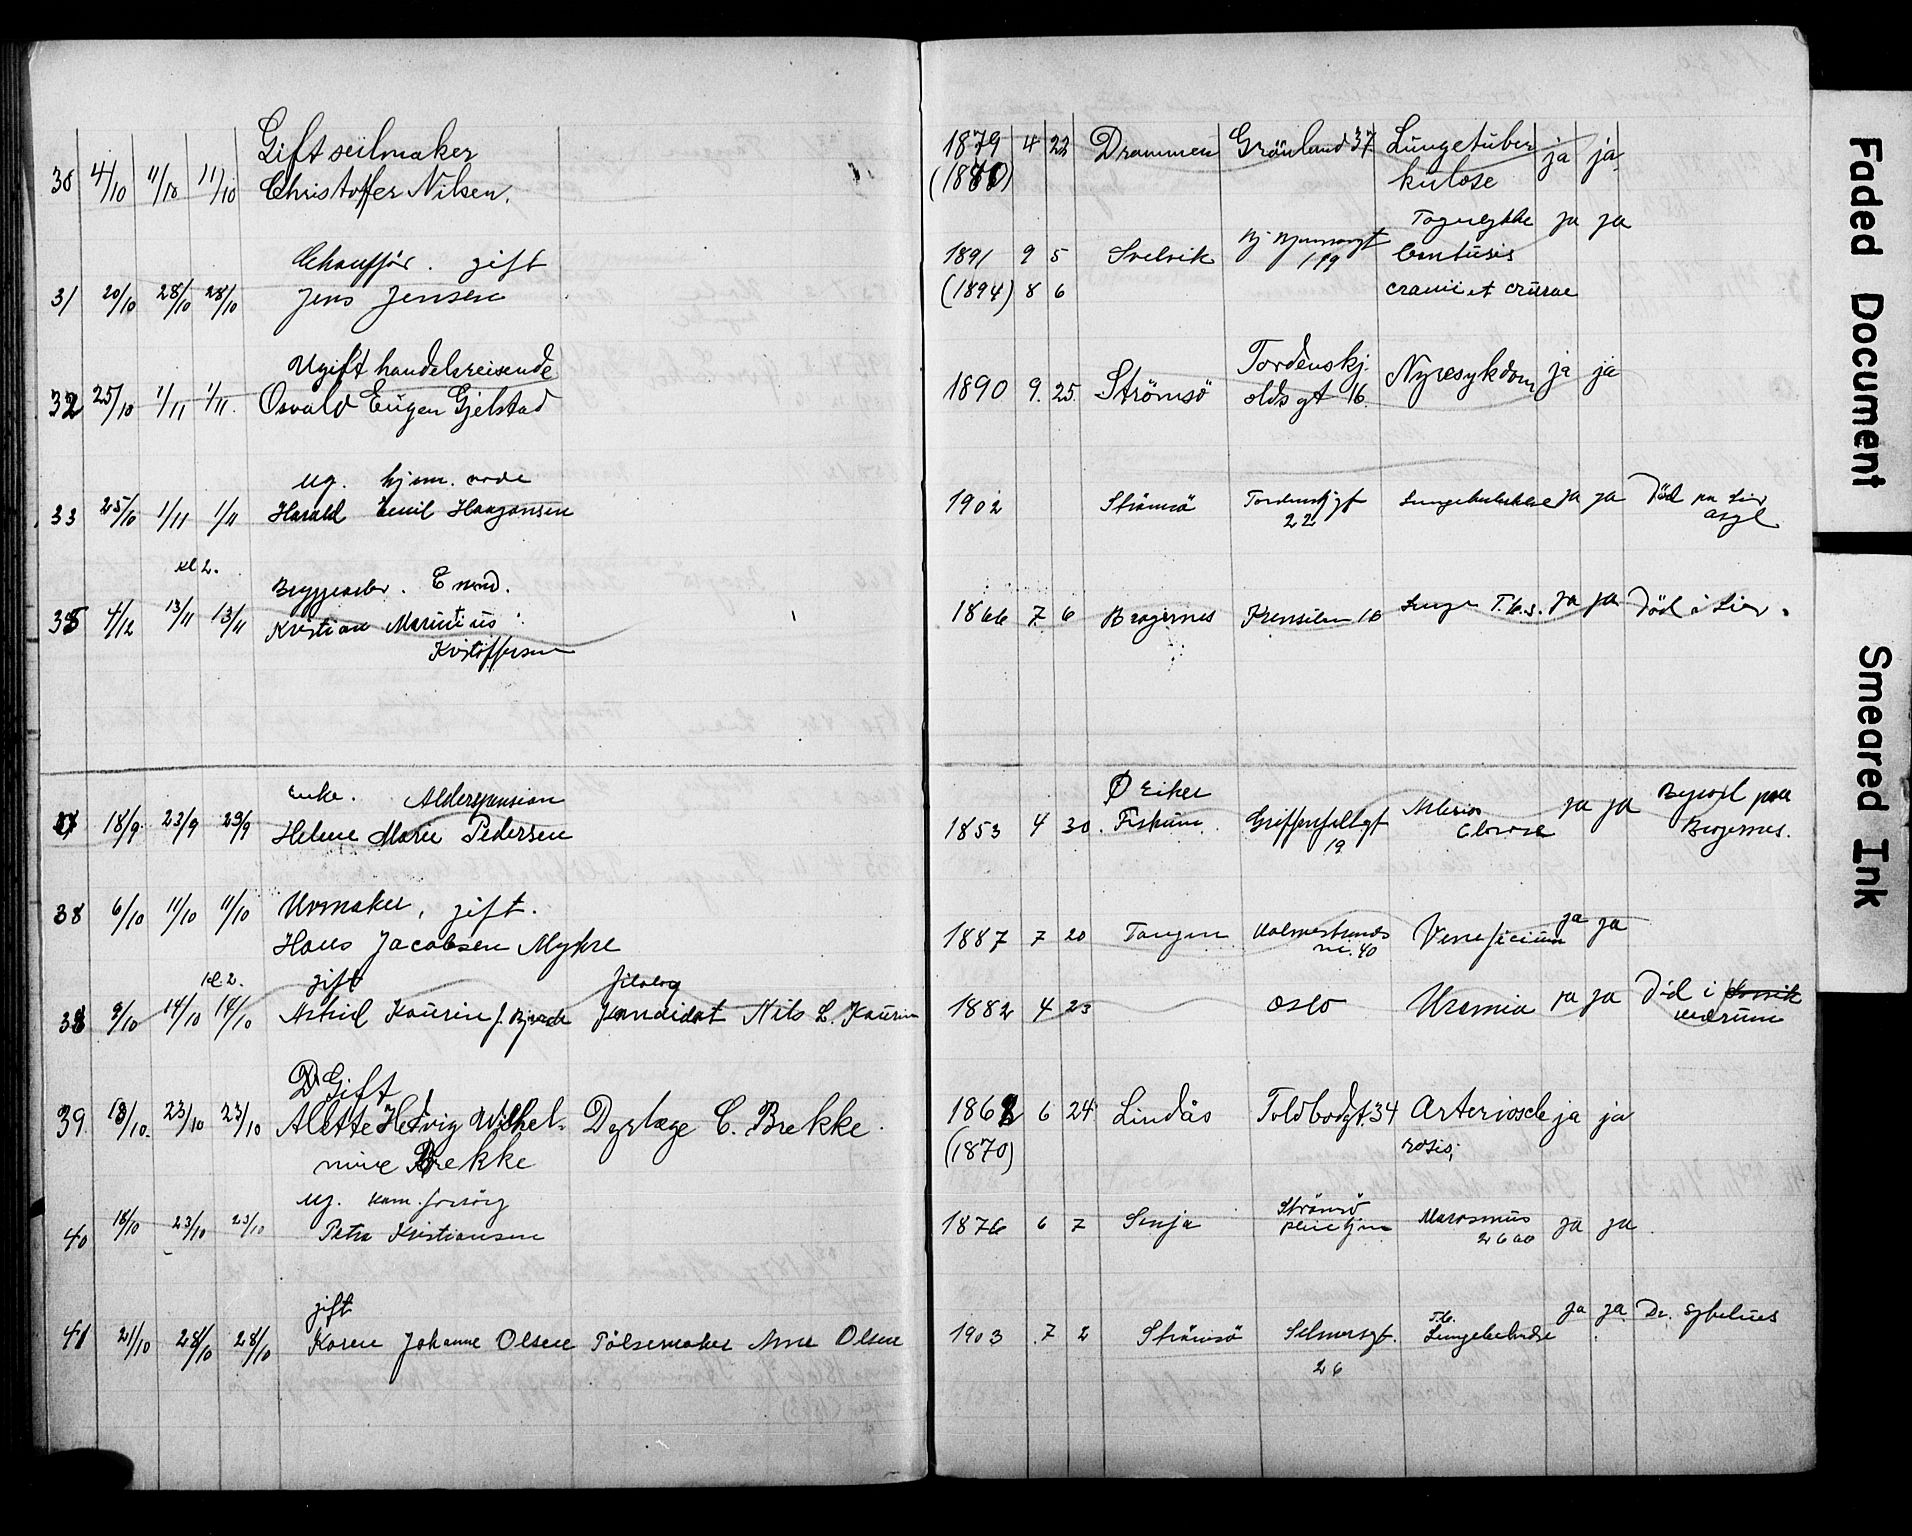 Gift seilmaker
30 4/10 11/10 11/10 Christoffer Nilsen.
Chauffør. gift
31 20/10 28/10 28/10 Jens Jensen
Ugift handelsreisende
32 25/10 1/11 1/11. Osvald Eugen Gjelstad
ug. hjem.
33 25/10 1/11 1/11 Harald Emil Haagonsen
kl 2.
Bryggearb. E mnd.
35 4/12 13/11 13/11 Kristian Marintius
Kristoffersen
Enke. Alderspension
18/9. 23/9 23/9 Helene Marie Pedersen
Urmaker, gift.
38 6/10 11/10 11/10 Hans Jacobsen Myhre
kl 2. gift filolog
38 9/10 14/10 14/10 Astrid Kaurin f. Kandidat Nils L. Kaurin
Gift
39. 18/10. 23/10 23/10 Alette Hedvig Wilhel- Dyrlæge C. Brekke.
mine Brekke
ug. kom. forsørg
40 18/10 23/10 23/10 Petra Kristiansen
gift
41 21/10 28/10 28/10 Karen Johanne Olsen Pølsemaker Arne Olsen
1879 4 22 Drammen Grønland 37 Lungetuber ja ja.
(1870) kulose
Tognlykke ja ja
1891 9 5 Svelvik 119 Contusis
(1894) 8 6 cranii et crurae
1890 9. 25. Strømsø Tordenskj. Nyresykdom ja ja
olds gt 16.
1902 Strømsø Tordenskjgt Lungetuberkulose ja ja Død på Lier
22 asyl
1866 7 6 Bragernes 10 Lunge T.b.s. ja ja Død i Lier.
Ø Eiker
1853 4 30. Fiskum. Griffenfeldtgt Arterio ja ja Bysykl paa
19 Clerose Bragernes.
1887 7 20 Tangen Holmestrands Veneficium ja ja
vei. 40
1882 4 23 Oslo Uremia ja ja Død i
Bærum
1868 6 24 Lindås Toldbodgt. 34 Arterioscle ja ja
(1870) rosis;
1876 6 7 Senja Strømsø Marasmus ja ja
pleiehjem
1903 7 2 Strømsø Selmersgt. Tb. ja ja Dr. Sybelius
26
Faded Document
Smeared Ink